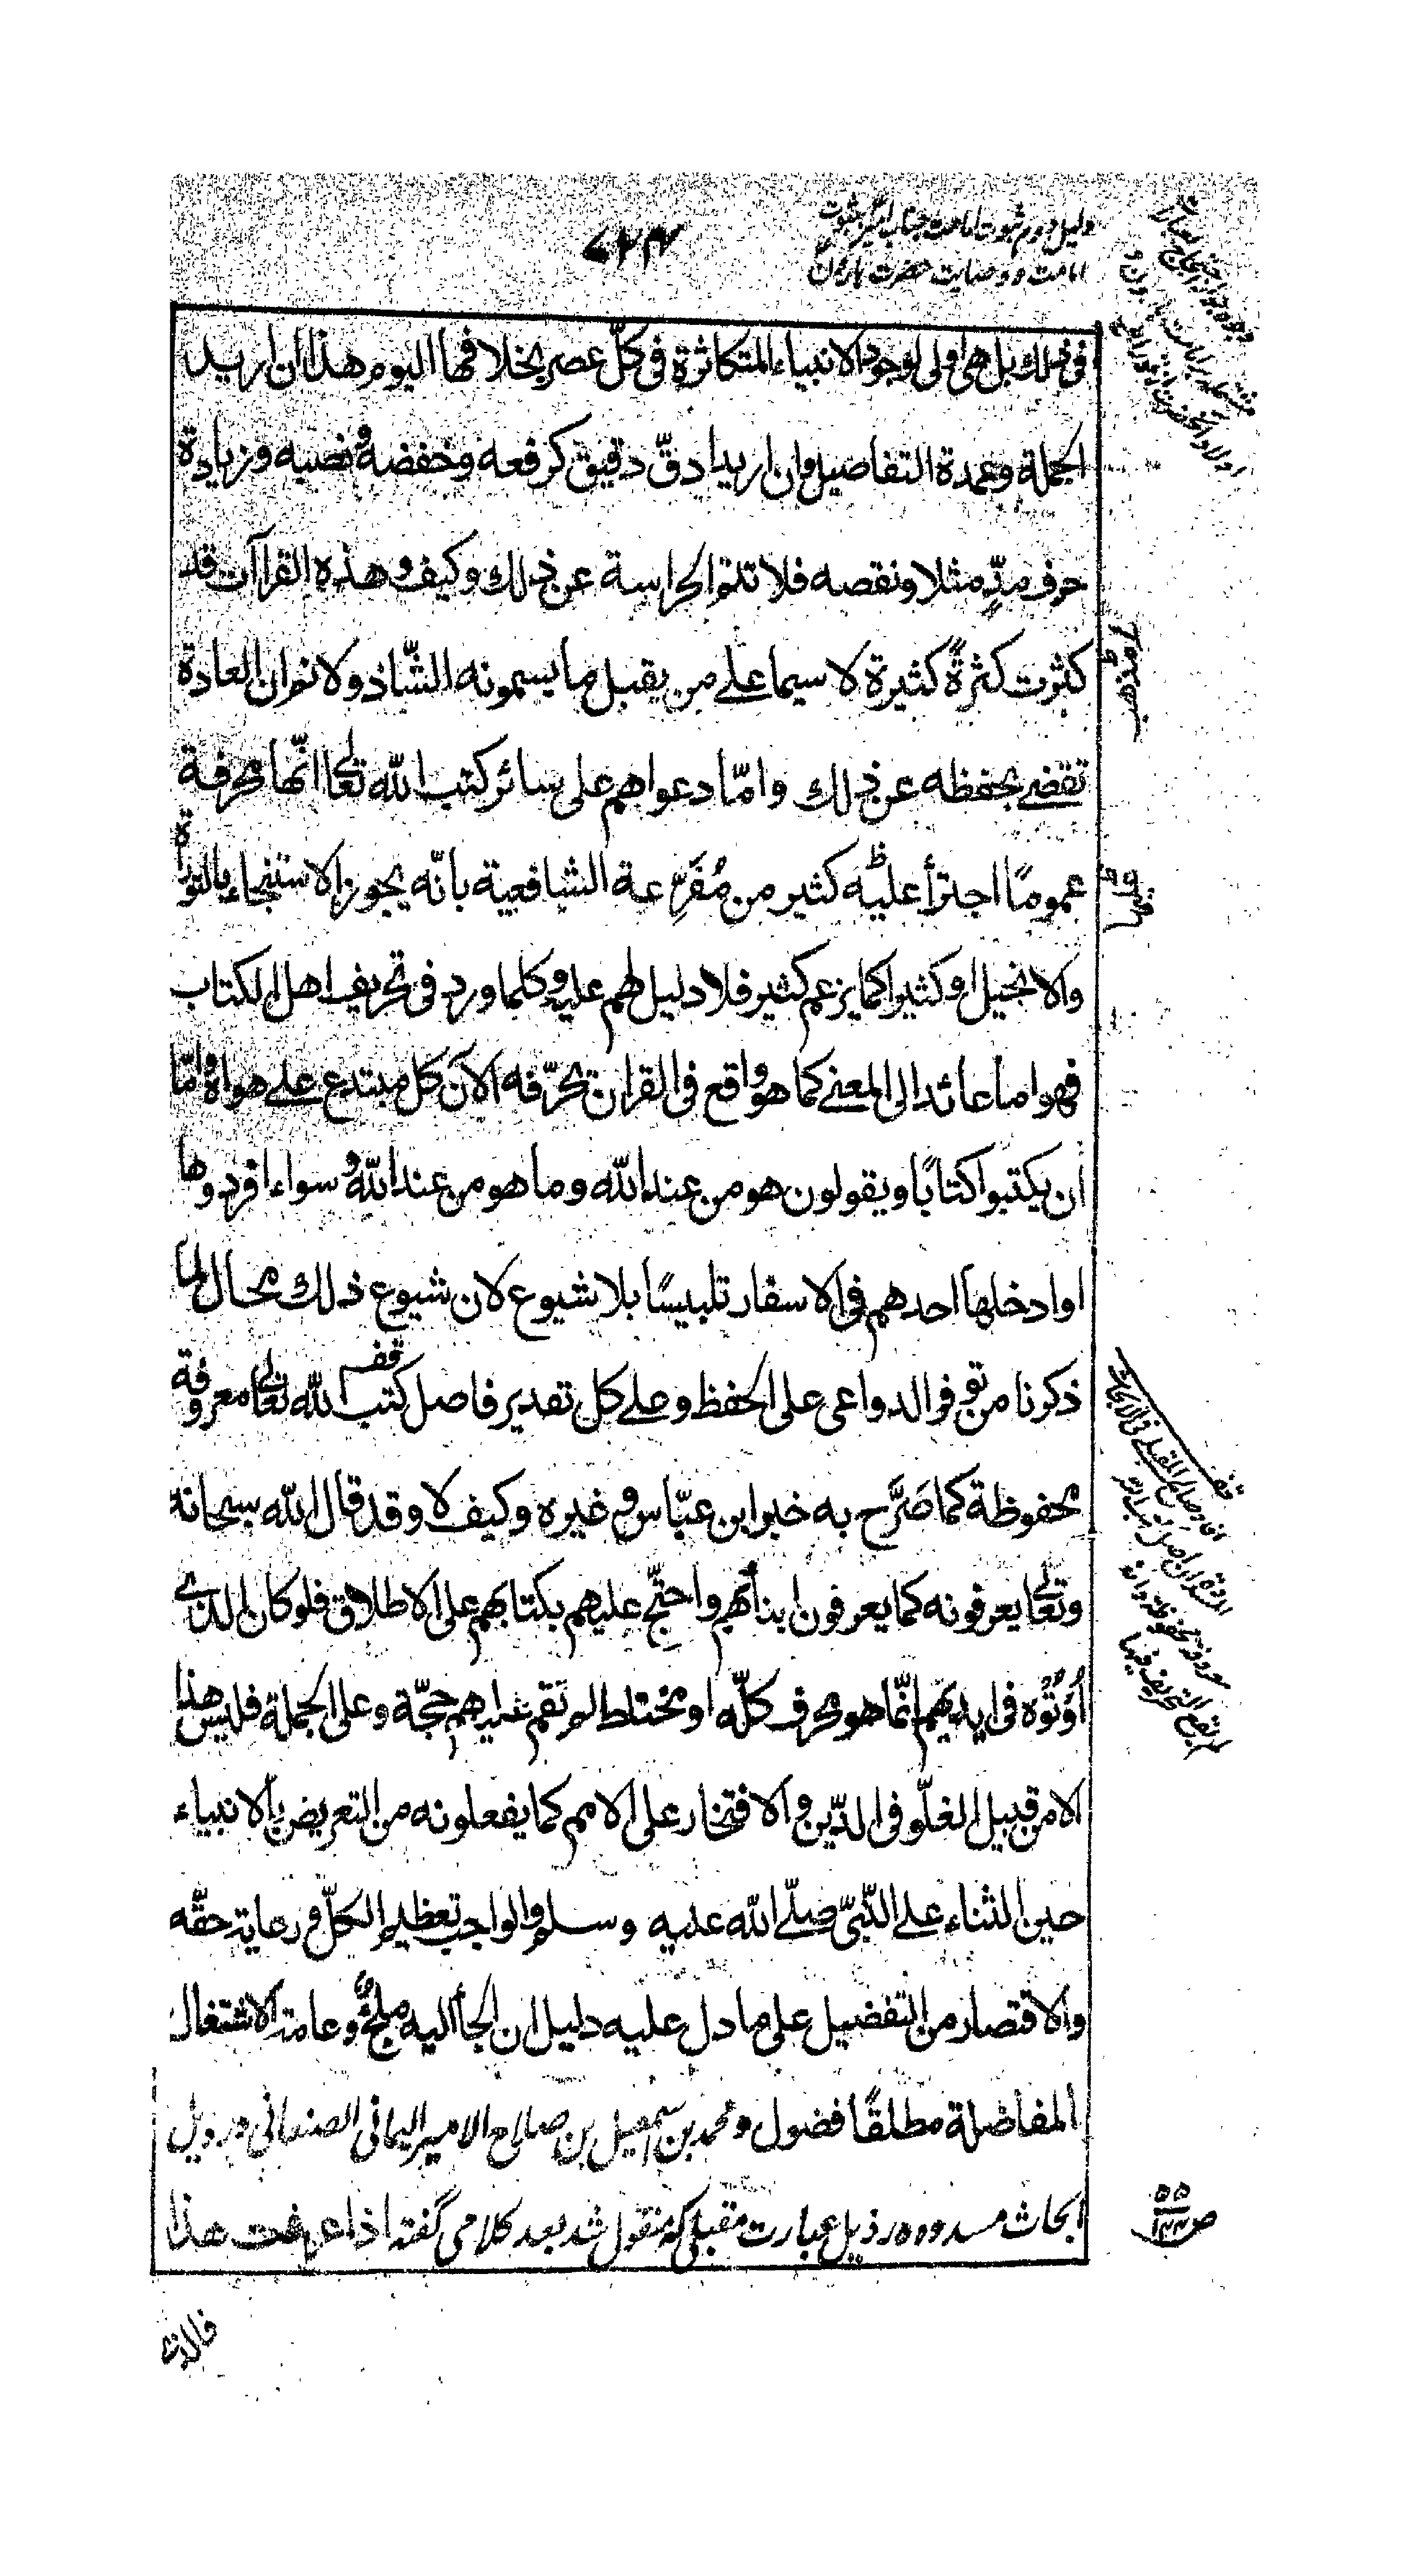 ۷۲۴
دلیل دوم ثبوت امامت جناب امیر بثبوت
امامت و وصایت حضرت هارون
في ذلك بل هى اولى لوجود الانبياء المتكاثرة فى كلّ عصر بخلافها اليوم هذا ان اريد
الجملة وعمدة التفاصيل وان اريد ادقّ دقيق كرفعه وخفضه ونصبه وزيادة
حرف مدٍّ مثلا ونقصه فلا تتم الحراسة عن ذلك وكيف وهذه القراآت قد
كثرت كثرةً كثيرة لا سيما على من يقبل ما يسمونه الشّاذ ولا نم ان العادة
تقضى بحفظه عن ذلك وامّا دعواهم على سائر كتب اللّه تعالى انّها محرفة
عمومًا اجترأ عليه كثير من مُفَرِّعة الشافعية بانّه يجوز الاستنجاء بالتوراة
والانجيل او كثيرا كما يزعم كثير فلا دليل لهم عليه وكلما ورد فى تحريف اهل الكتاب
فهو اما عائد الى المعنى كما هو واقع فى القران يحرّفه الآن كل مبتدع على هواه وامّا
ان يكتبوا كتابًا ويقولون هو من عند اللّه وما هو من عند اللّه وسواء افردوها
او ادخلها احدهم فى الاسفار تلبيسًا بلا شيوع لان شيوع ذلك محال لما
ذكرنا من توفر الدواعى على الحفظ وعلى كل تقدير فاصل كتب اللّه تعالى معروفة
قف
محفوظة كما صَرَّح به خبر ابن عبّاس وغيره وكيف لا وقد قال اللّه سبحانه
وتعالى يعرفونه كما يعرفون ابنائهم واحتجّ عليهم بكتابهم على الاطلاق فلو كان الذى
اُوتُوْه فى ايديهم انّما هو محرف كلّه او مختلط لم تقم عليهم حجّة وعلى الجملة فليس هذا
الا من قبيل الغلّو فى الدّين والافتخار على الامم كما يفعلونه من التعريض بالانبياء
حين الثناء على النّبىّ صلّى اللّه عليه وسلم والواجب تعظيم الكلّ ورعاية حقّه
والاقتصار من التفضيل على ما دل عليه دليل ان الجأ اليه ملجئٌ وعامة الاشتغال
المفاضلة مطلقًا فضول ومحمد بن اسمعيل بن صلاح الامير اليمانى الصنعانى در ذيل
ابحاث مسدده در ذيل عبارت مقبلى كه منقول شد بعد كلامى گفته اذا عرفت هذا
قف
ص ۵۵/۱۴۴
فالتو